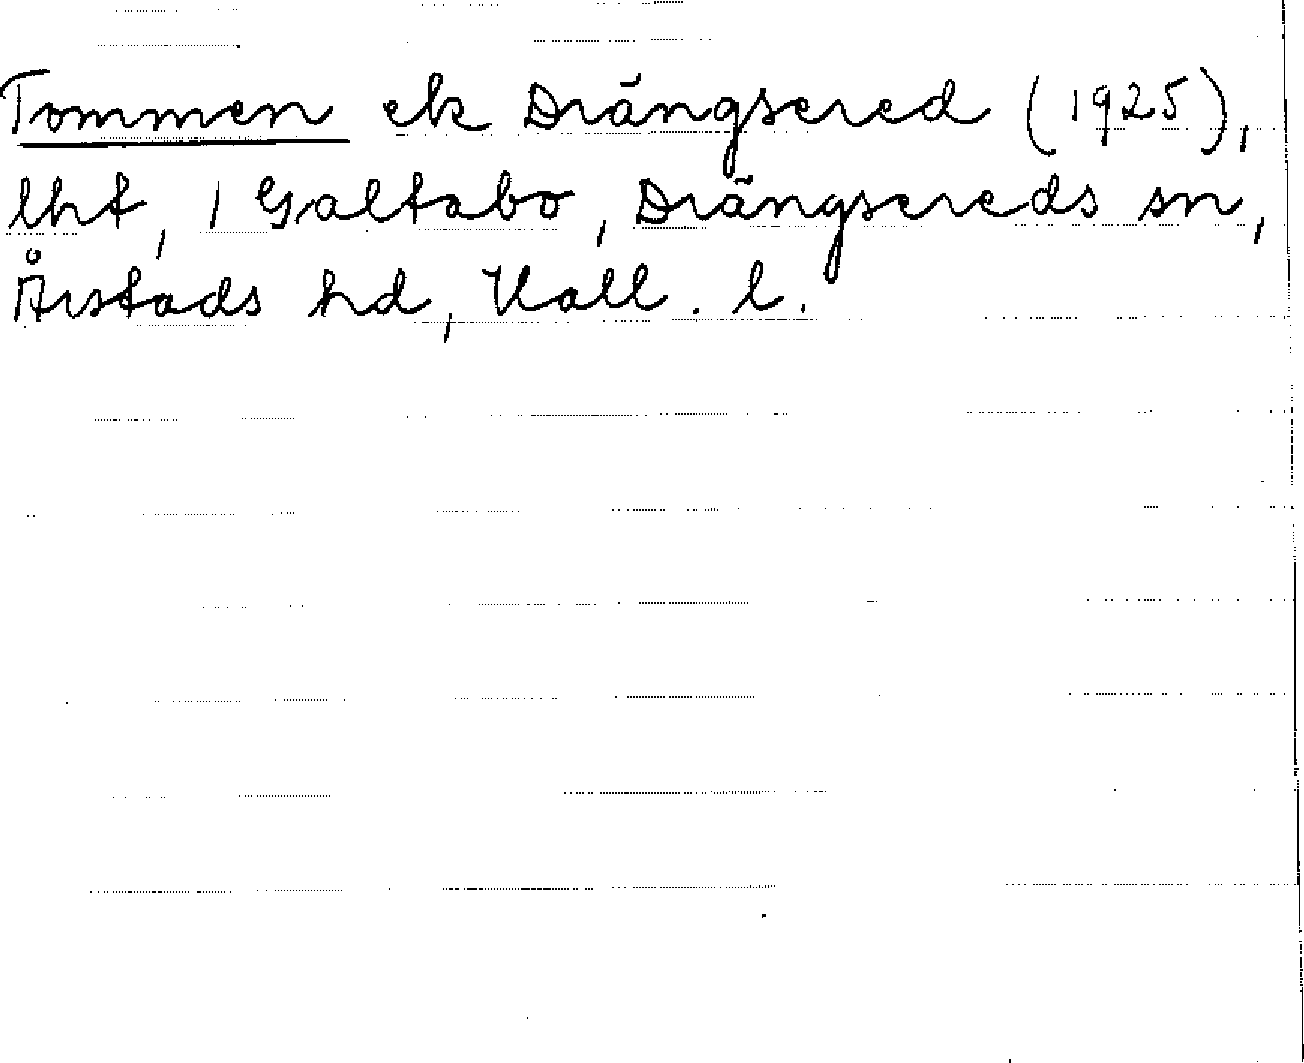 Tommen ek Drängsered (1925),
lht, 1 Galtabo, Drängsereds sn,
Årstads hd, Hall. l.